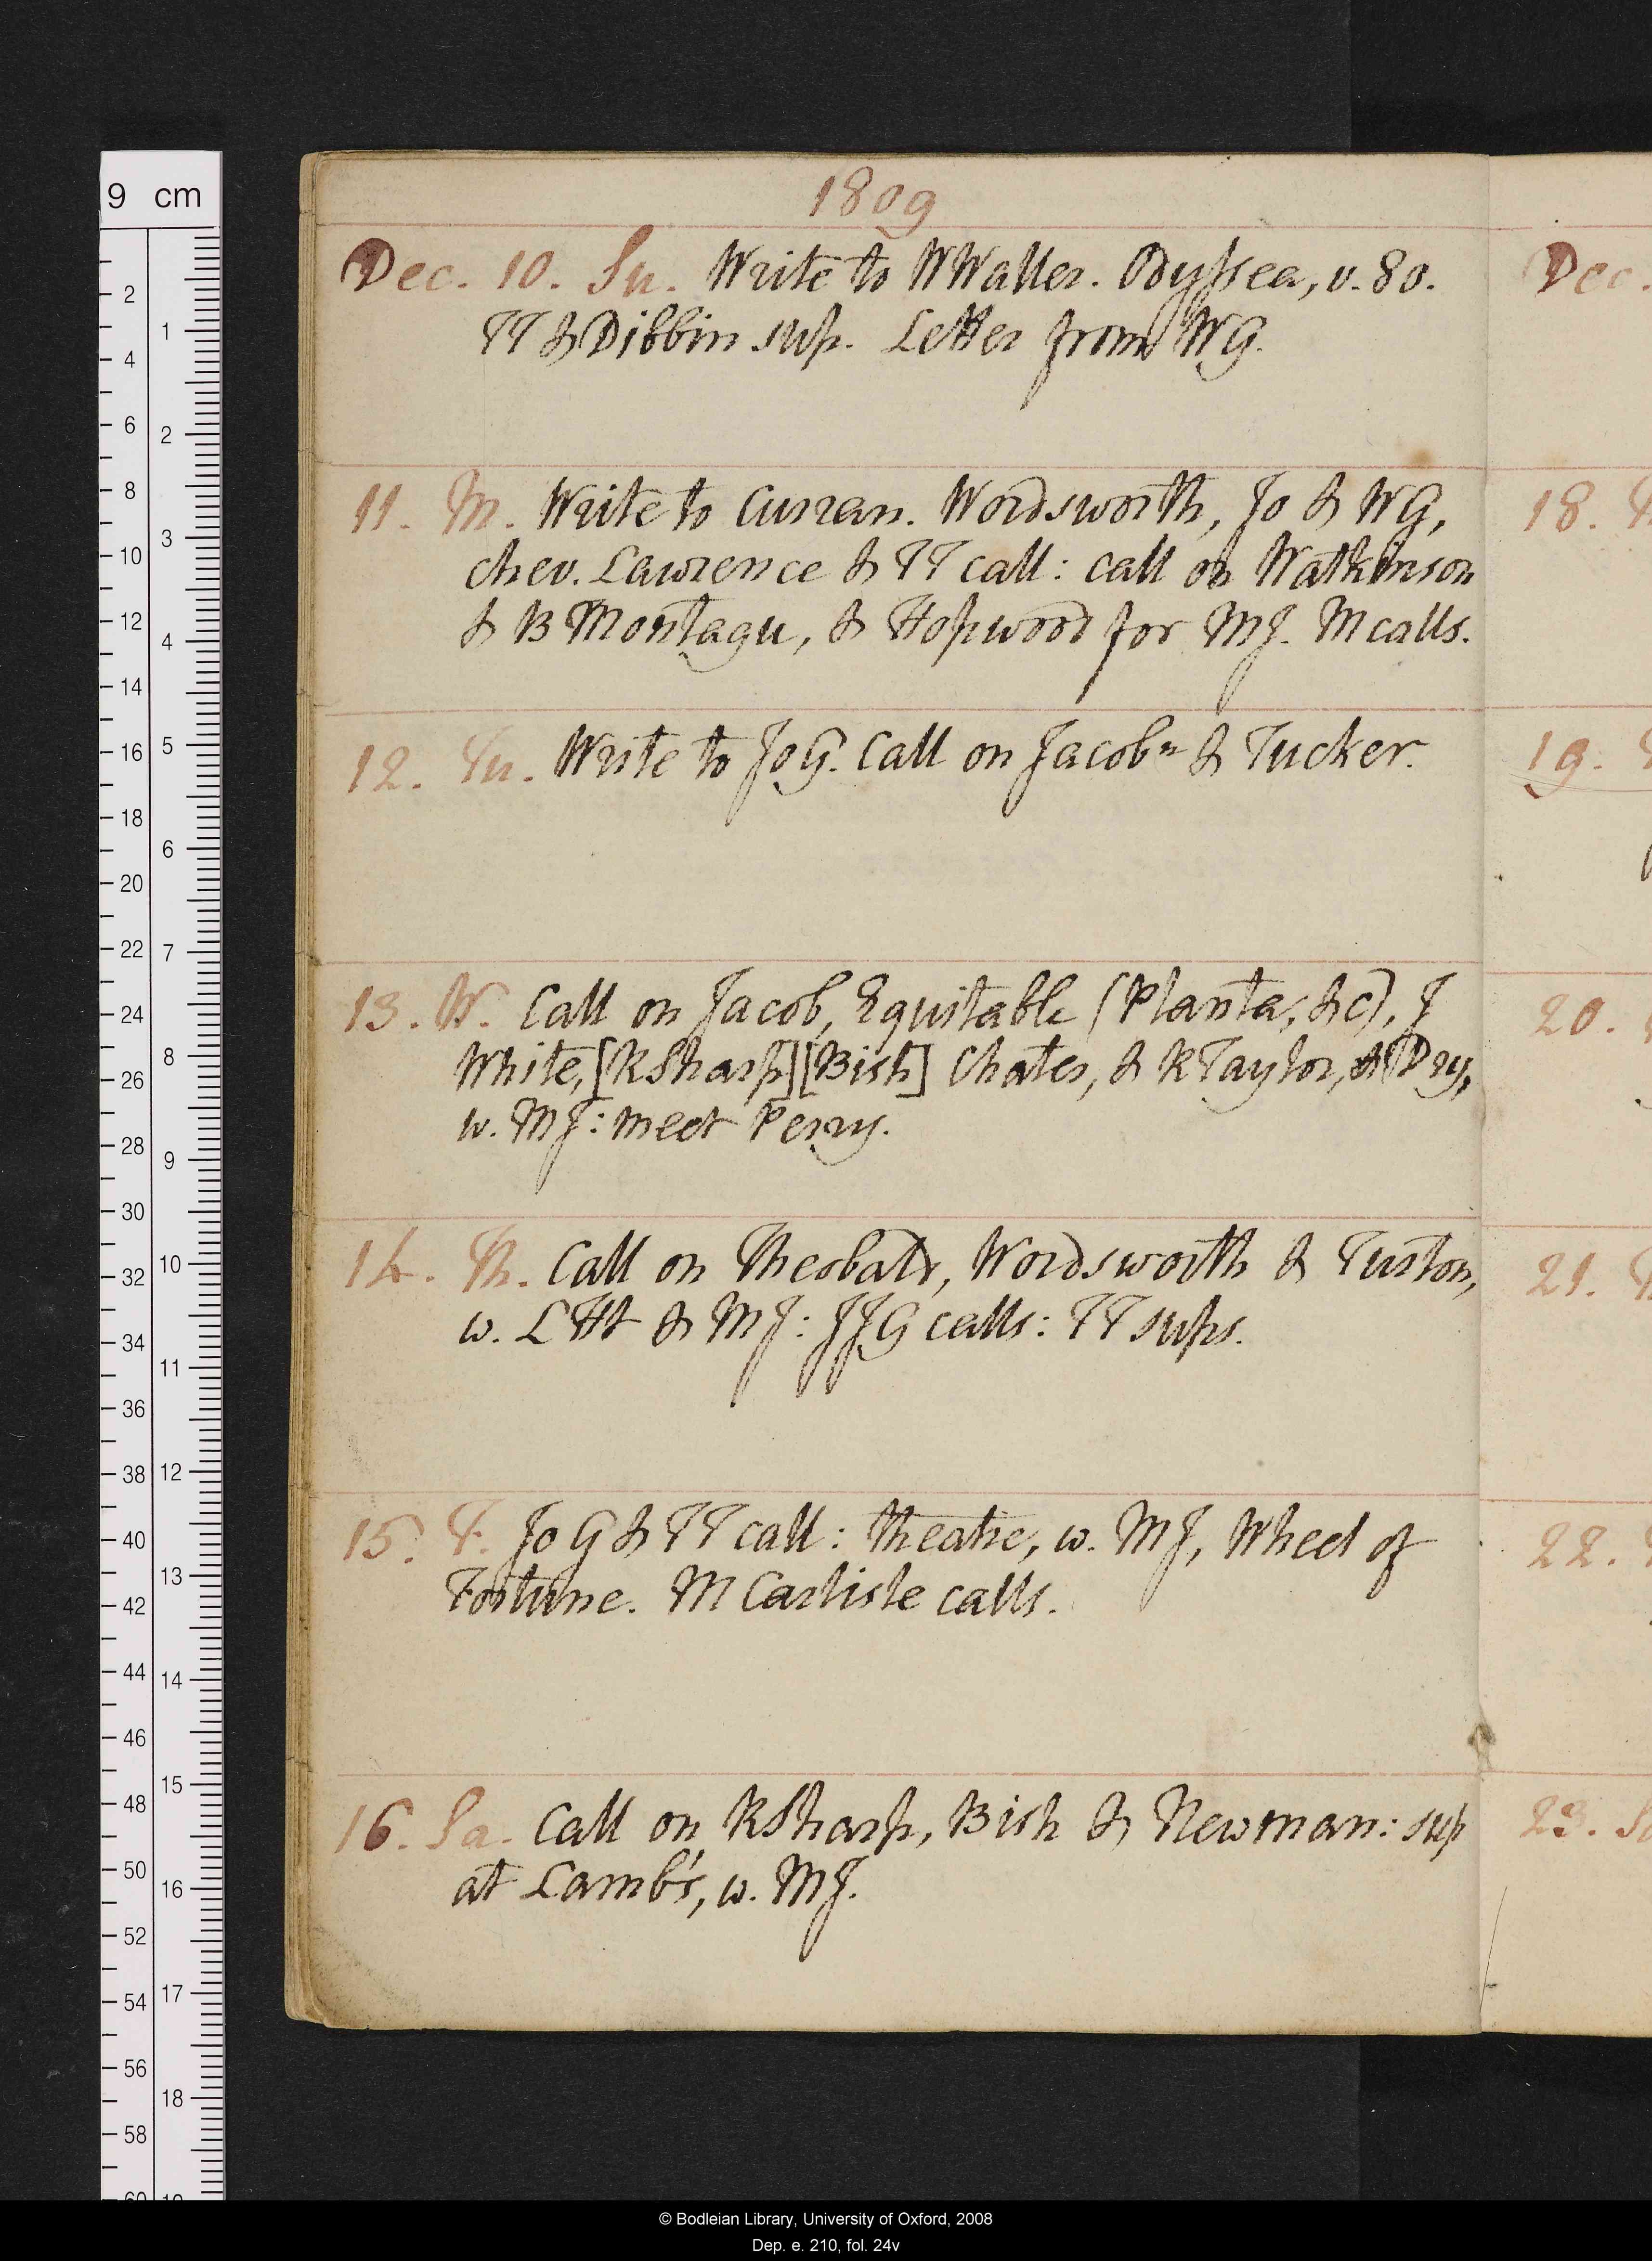 1809
Dec. 10. Su. Write to W Waller. Odyssea, v. 80.
TT & Dibbin sup. Letter from WG.
11. M. Write to Curran. Wordsworth, Jo & WG,
chev. Lawrence & TT call: call on Watkinson
& B Montagu, & Hopwood for MJ. M calls.
12. Tu. Write to JoG. Call on Jacobn & Tucker.
13. W. Call on Jacob, Equitable (Planta, &c), J
White, [R Sharp] [Bish] Chater, & R Taylor, & Dry,
w. MJ: meet Perry.
14. Th. Call on Theobald, Wordsworth & Turton,
w. LHt & MJ: JJG calls: TT sups.
15. F. Jo G & TT call: theatre, w. MJ, Wheel of
Fortune. M Carlisle calls.
16. Sa. Call on R Sharp, Bish & Newman: sup
at Lamb's, w. MJ.
Dec.
18.
19.
20.
21.
22.
23.
9 cm
2 4 6 8 10 12 14 16 18 20 22 24 26 28 30 32 34 36 38 40 42 44 46 48 50 52 54 56 58 60
1 2 3 4 5 6 7 8 9 10 11 12 13 14 15 16 17 18 19
© Bodleian Library, University of Oxford, 2008
Dep. e. 210, fol. 24v